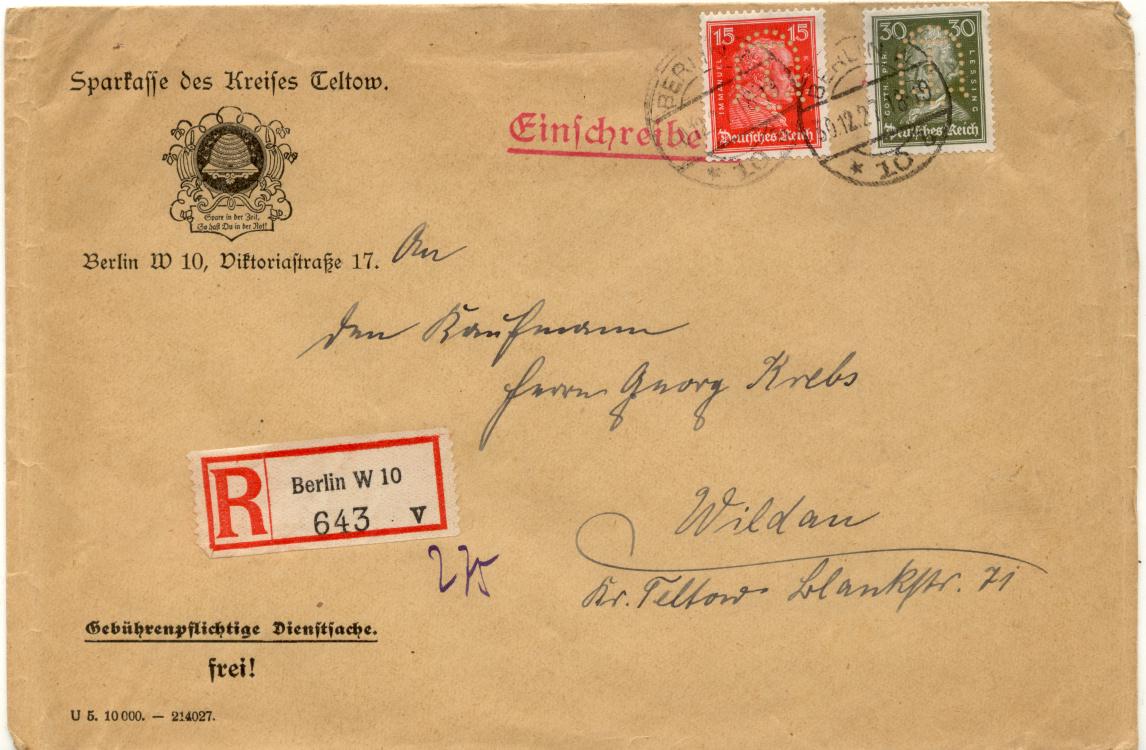 Sparkasse des Kreises Teltow.
Spare in der Zeit,
So hast Du in der Not!
Berlin W 10, Viktoriastraße 17.
Einschreibe
15 15
IMMANUEL K
Deutsches Reich
30 30
GOTTH. EPHR. LESSING
Deutsches Reich
BERLIN
* 10
BERLIN
30.12.2
* 10
An
den Kaufmann
Herrn Georg Krebs
Wildau
Kr. Teltow Blankstr. 71
R
Berlin W 10
643 v
275
Gebührenpflichtige Dienstsache.
frei!
U 5. 10 000. — 214027.